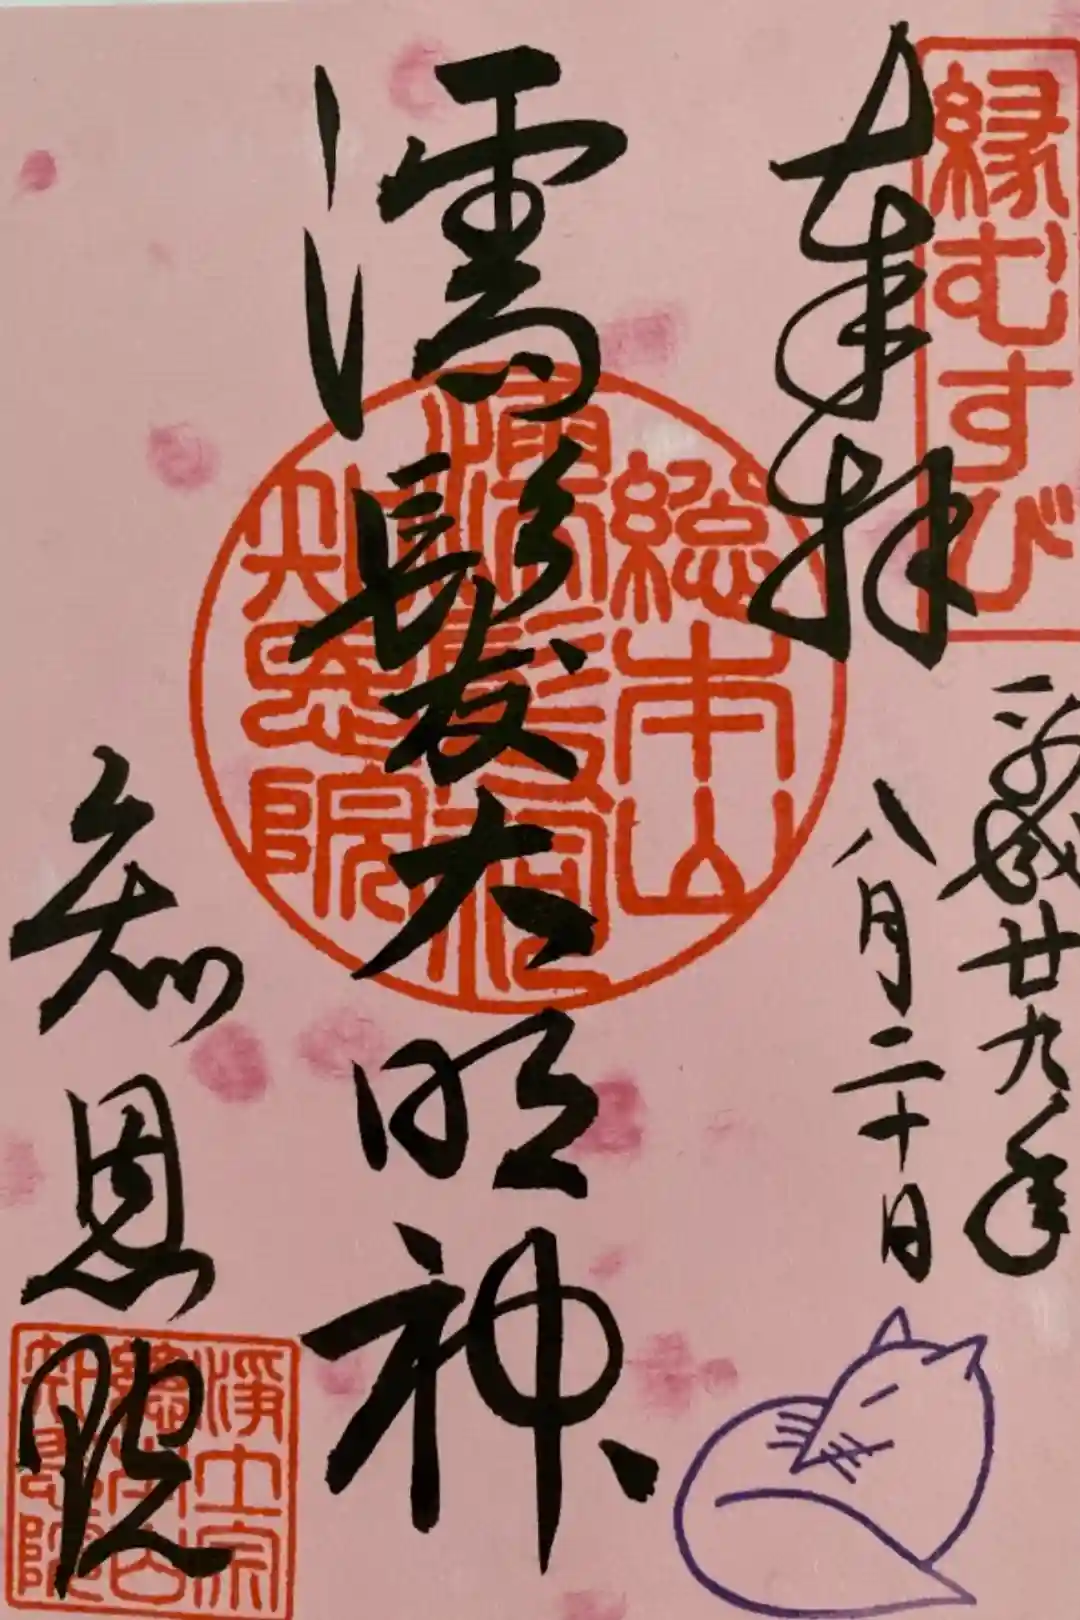 縁むすび
奉拝
平成廿九年
八月二十日
濡髪大明神
総本山
濡髪祠
知恩院
知恩院
浄土宗
総本山
知恩院